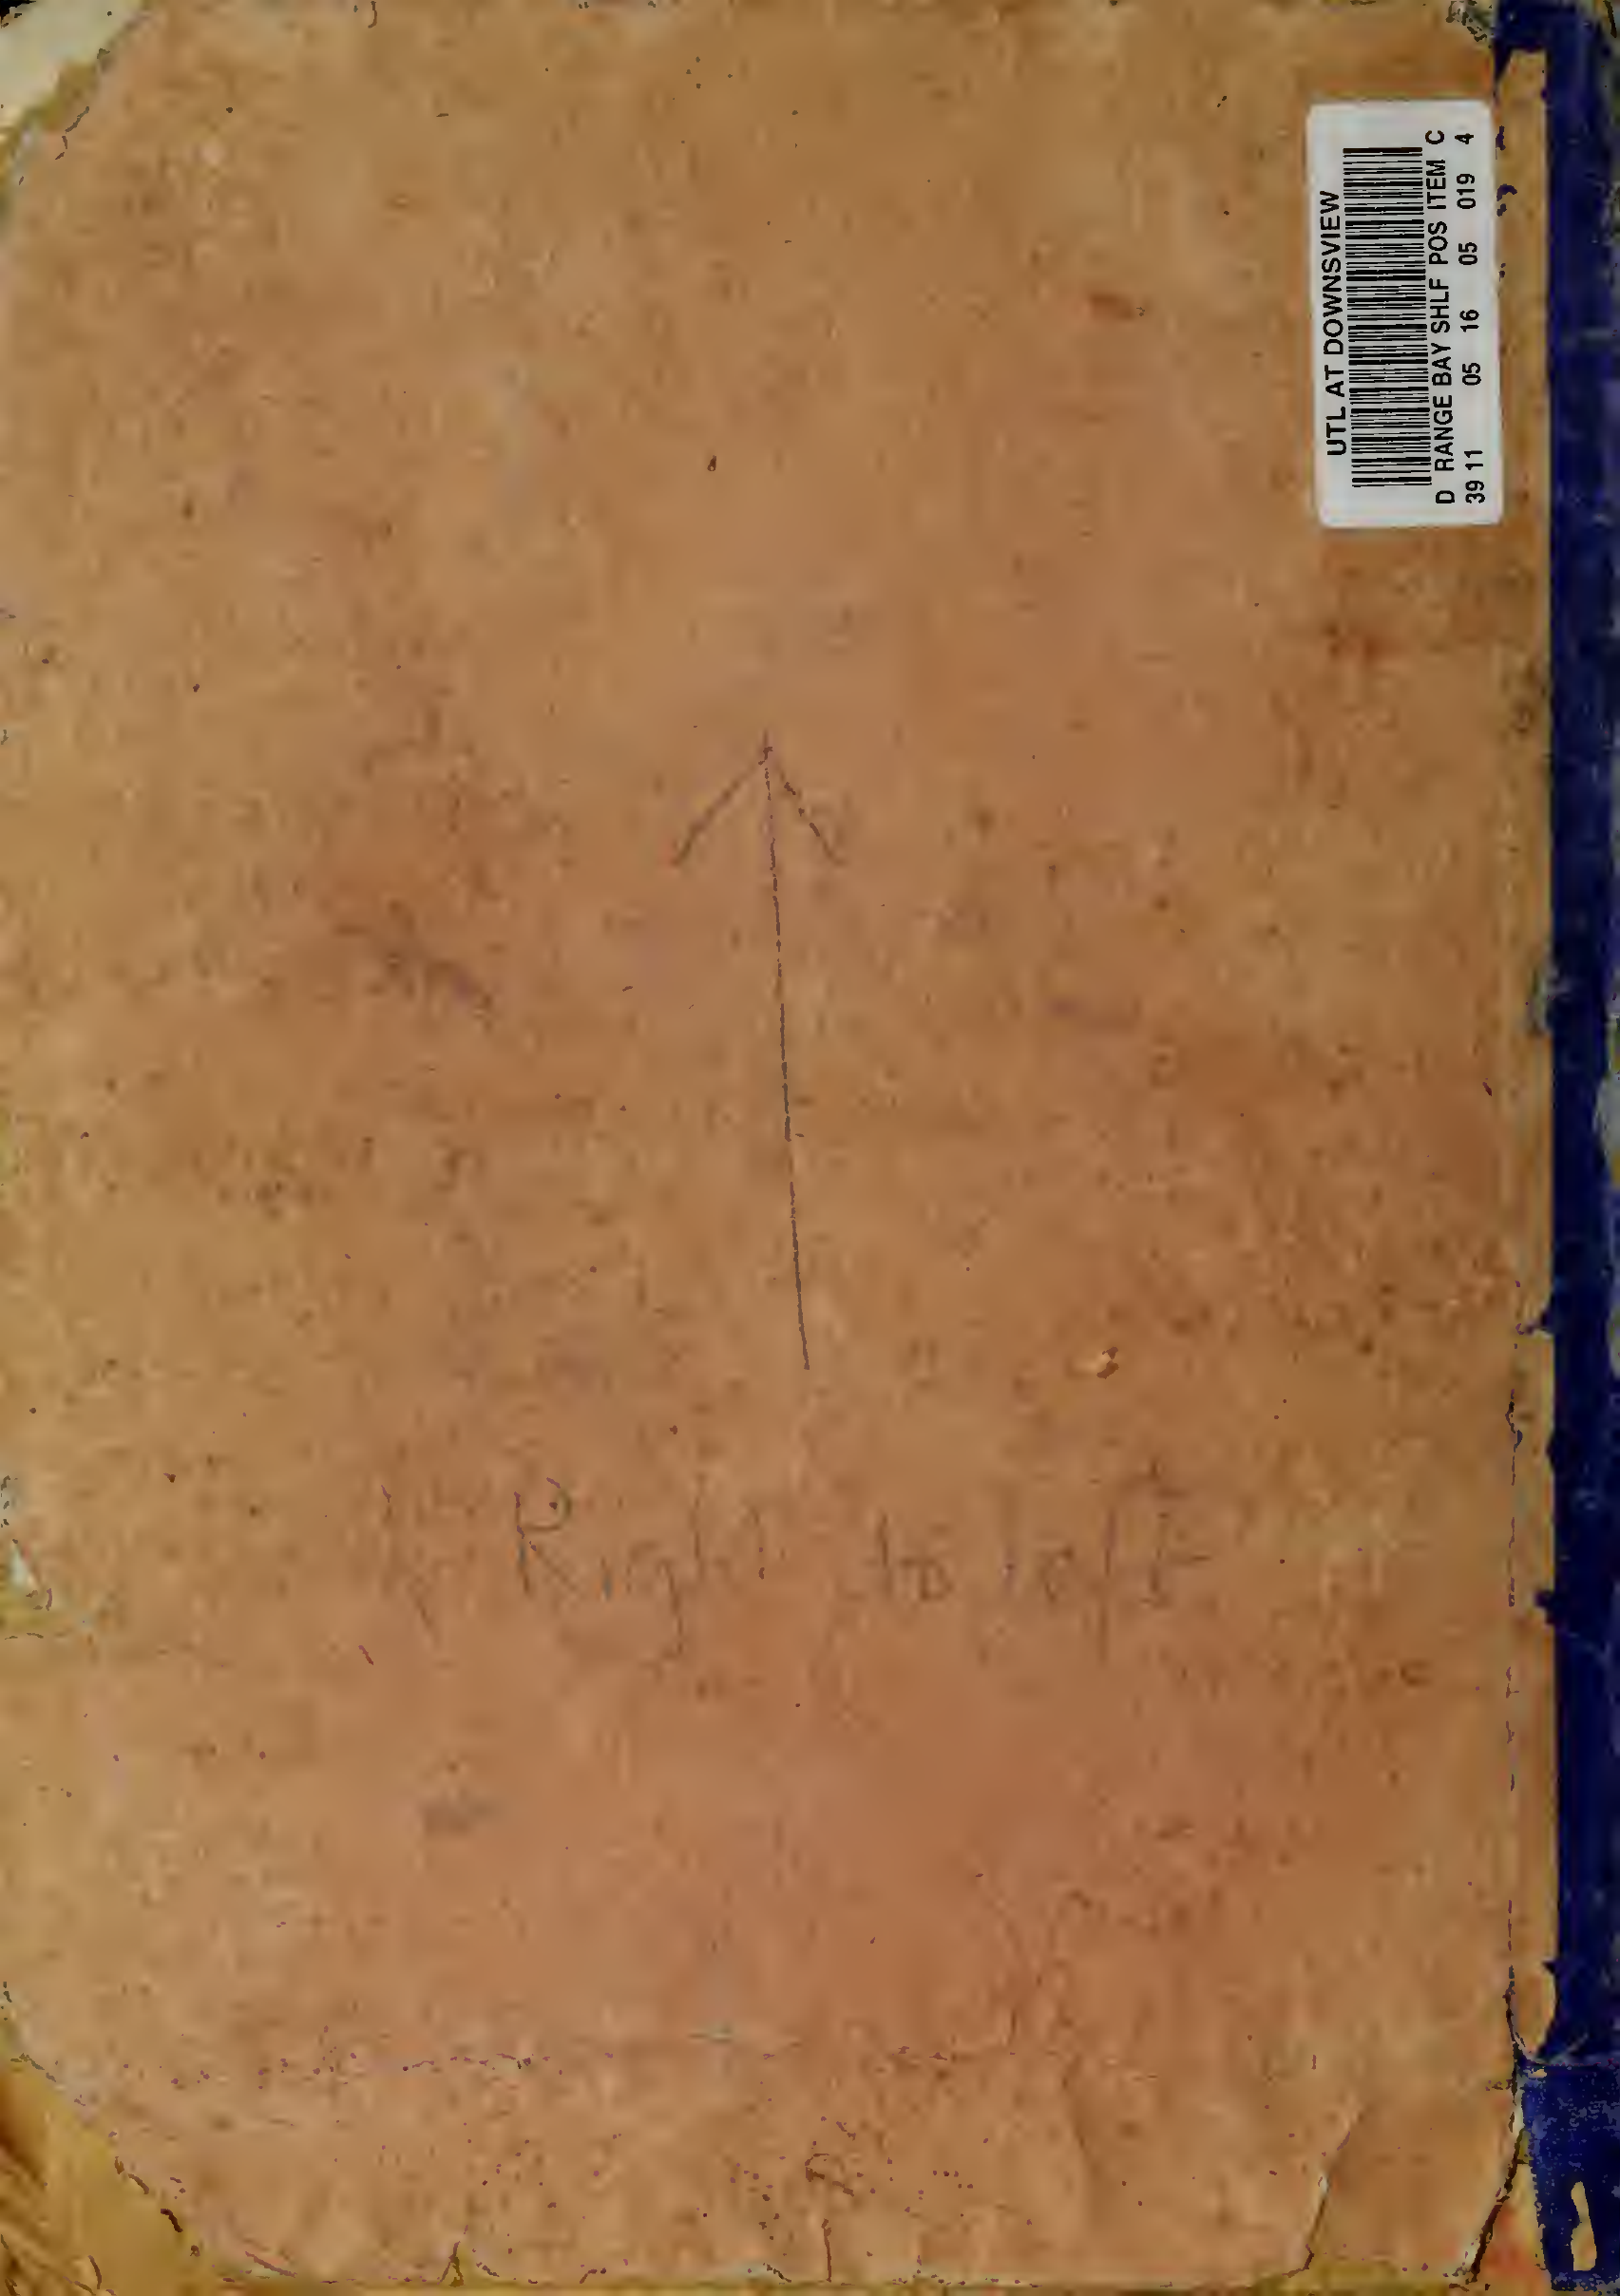 UTL AT DOWNSVIEW
D RANGE BAY SHLF POS ITEM C
39 11 05 16 05 019 4
Right to left